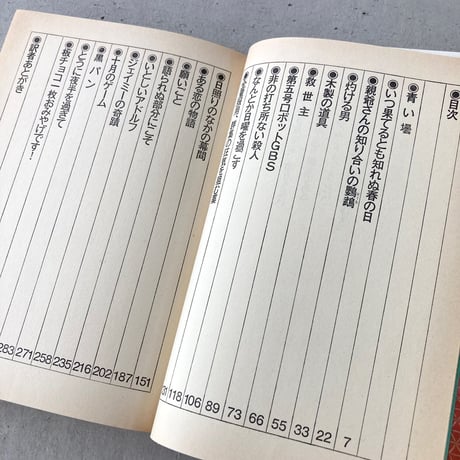 ●目次
●青い壜
●いつ果てるとも知れぬ春の日
●親爺さんの知り合いの鸚鵡
●灼ける男
●木製の道具
●救世主
●第五号ロボットGBS
●非の打ち所ない殺人
●なんとか日曜を過ごす
7
22
33
55
66
73
89
106
118
31
●日照りのなかの幕間
●ある恋の物語
●願いごと
●語られぬ部分にこそ
●いとしいアドルフ
●ジェイミーの奇蹟
●十月のゲーム
●黒パン
●とうに夜半を過ぎて
●板チョコ一枚おみやげです!
訳者あとがき
151
187
202
216
235
258
271
283